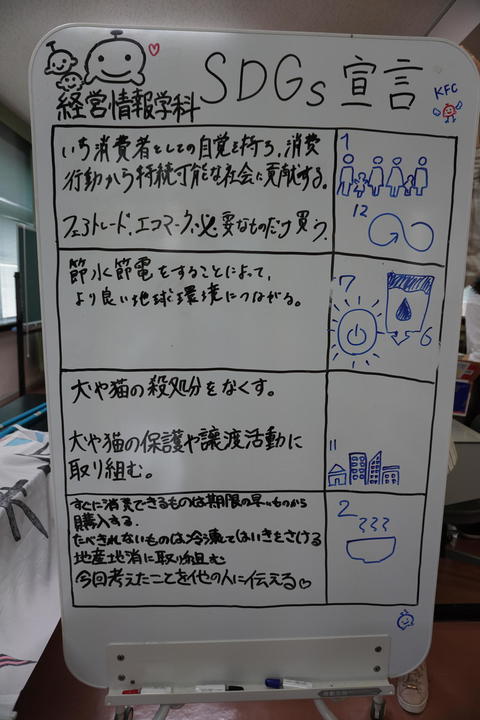 経営情報学科 SDGs 宣言
KFC
いち消費者としての自覚を持ち、消費
行動から持続可能な社会に貢献する。
フェアトレード、エコマーク、必要なものだけ買う.
1
12
節水節電をすることによって、
より良い地球環境につながる。
7
6
犬や猫の殺処分をなくす。
犬や猫の保護や譲渡活動に
取り組む。
11
すぐに消費できるものは期限の早いものから
購入する.
たべきれないものは冷凍してはいきをさける
地産地消に取り組む
今回考えたことを他の人に伝える♡
2